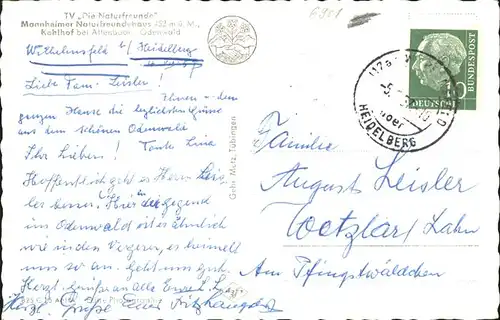 TV „Die Naturfreunde"
Mannheimer Naturfreundehaus 452 m ü. M.,
Kohlhof bei Altenbach, Odenwald
Wilhelmsfeld b/ Heidelberg
Liebe Fam. Leisler!
Ihnen - dem
ganzen Hause die herzlichsten Grüsse
aus dem schönen Odenwald
Tante Lina
Ihr Lieben!
Hoffentlich geht es Herrn Leis-
ler besser. Hier die Gegend
im Odenwald ist es ähnlich
wie in den Vogesen, es bummelt
uns so an. Geht uns gut.
Herzl. Grüsse an alle
Herzl. Grüße Euer
Gebr. Metz, Tübingen
HEIDELBERG
über
DEUTSCHE
BUNDESPOST
10
Familie
August Leisler
Wetzlar/Lahn
Am Pfingstwäldchen